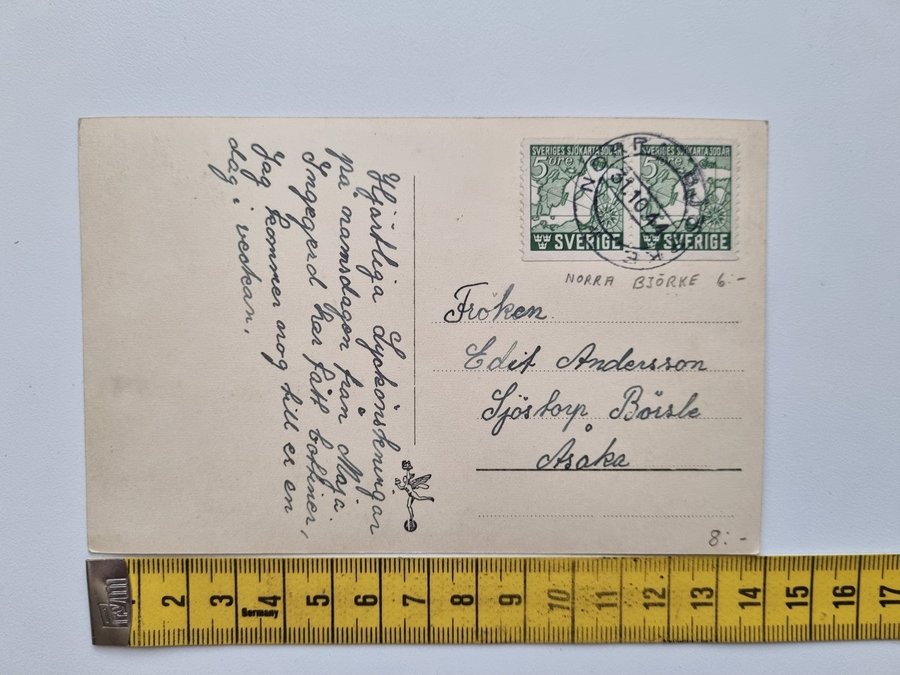 Hjärtliga Lyckönskningar
på namsdagen från Maja.
Ingegerd har fått bottiner,
Jag kommer nog till er en
dag i veckan,
SVERIGES SJÖKARTA 300 ÅR
5 öre
SVERIGE
SVERIGES SJÖKARTA 300 ÅR
5 öre
SVERIGE
NORRA BJÖRKE
31.10.44
NORRA BJÖRKE 6:-
Fröken
Edit Andersson
Sjöstorp Börsle
Åsaka
8:-
2 3 4 5 6 7 8 9 10 11 12 13 14 15 16 17
Germany